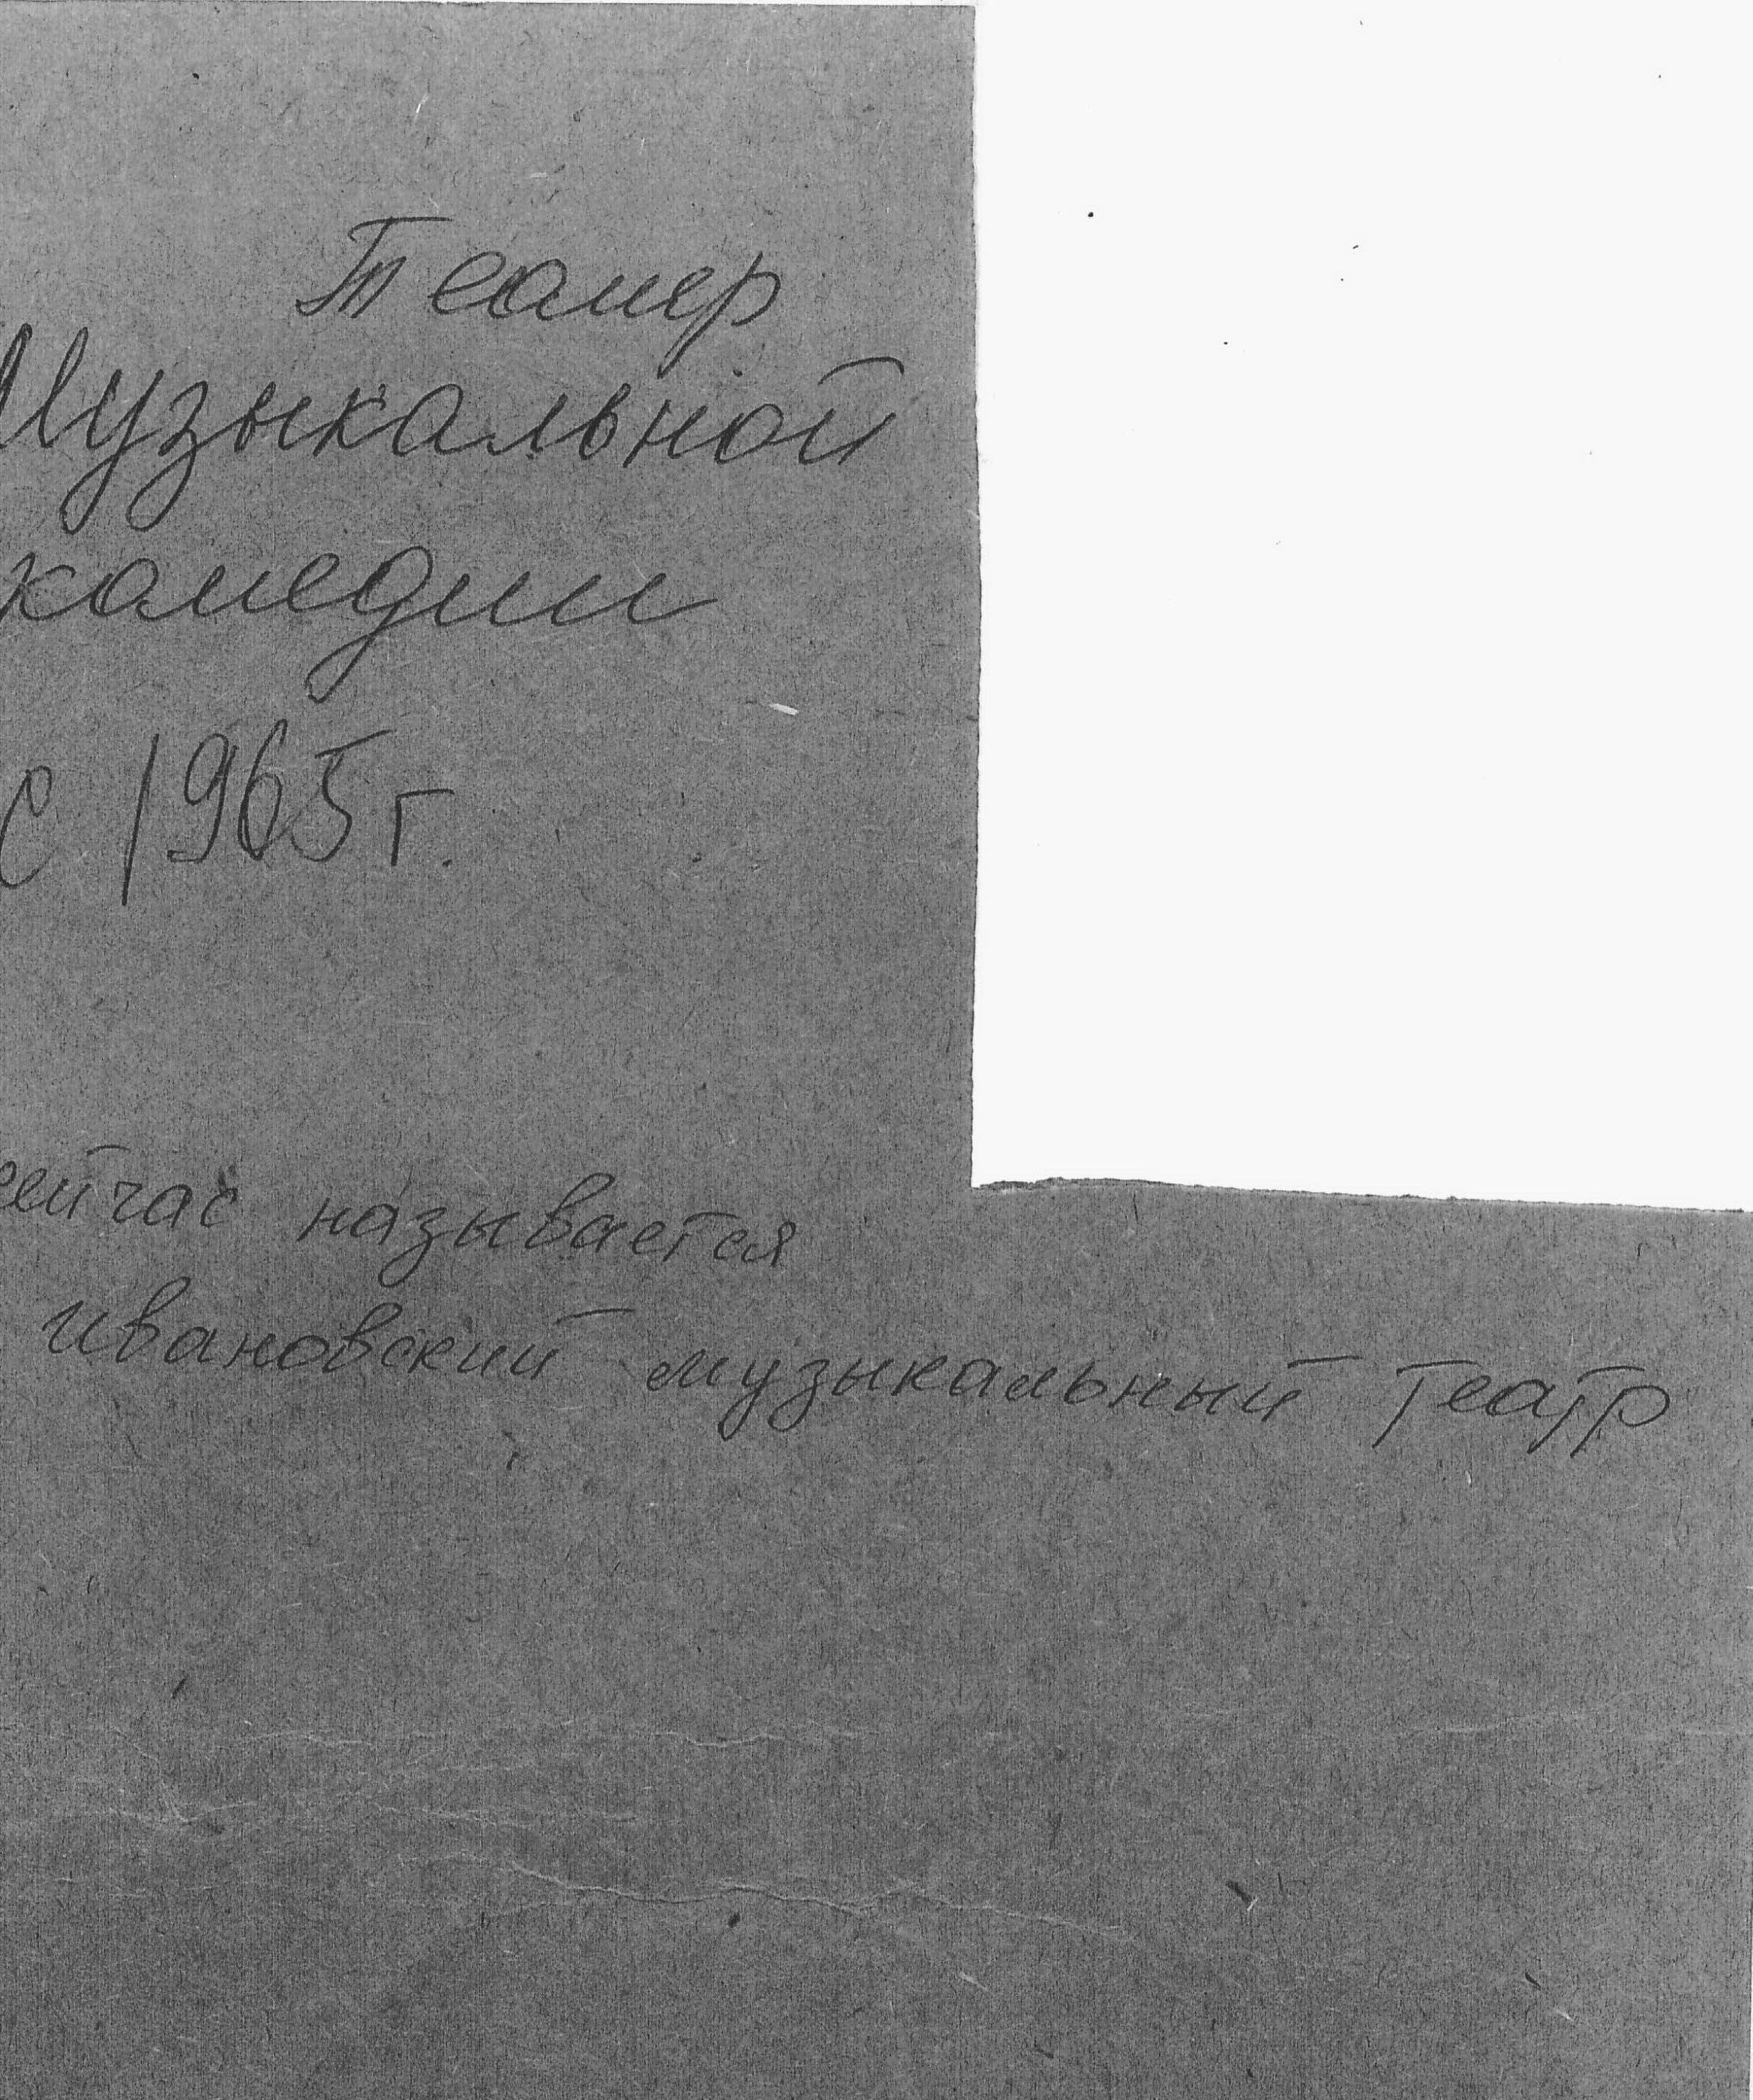 Театр
Музыкальной
комедии
с 1965 г.
сейчас называется
ивановский музыкальный театр